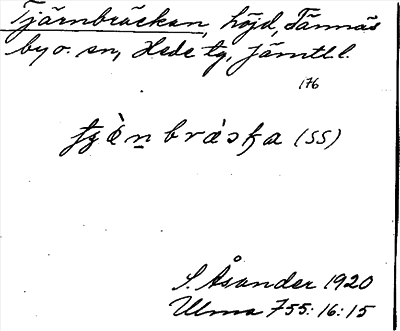 Tjärnbräckan, höjd, Tännäs
by o. sn, Hede tg, Jämtl. l.
176
(SS)
S. Åsander 1920
Ulma 755:16:15